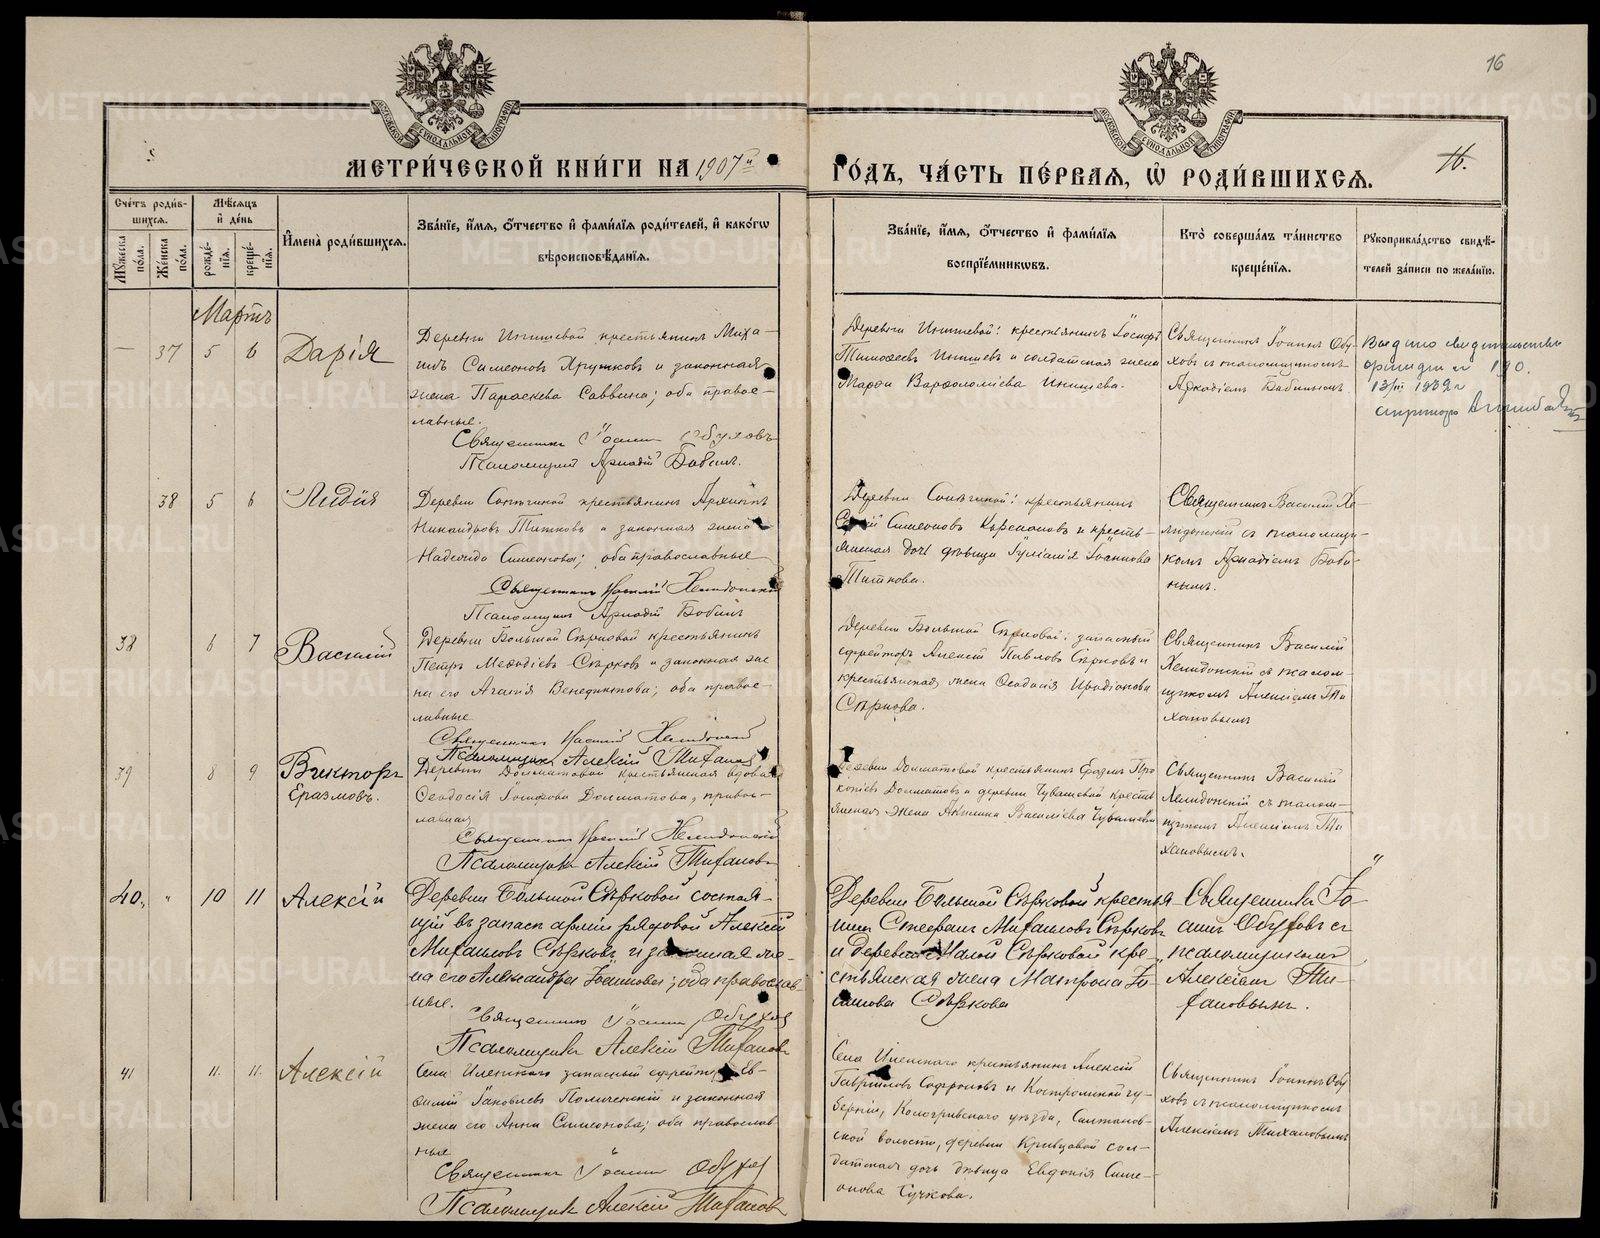 16
МЕТРИ́ЧЕСКОЙ КНИ́ГИ НА 1907й
ГО́ДЪ, ЧА́СТЬ ПЕ́РВАЯ, Ѡ҆ РОДИ́ВШИХСЯ.
16.
Сче́тъ роди́в-
шихся.
Мꙋ́жеска по́ла.
Же́нска по́ла.
Мѣ́сяцъ
и҆ де́нь
рожде́-
нїя.
креще́-
нїя.
И҆мена̀ роди́вшихся.
Зва́нїе, и҆́мя, ѻ҆́тчество и҆ фами́лїя роди́телей, и҆ како́гѡ
вѣроисповѣ́данїя.
Зва́нїе, и҆́мя, ѻ҆́тчество и҆ фами́лїя
воспрїе́мникѡвъ.
Кто̀ соверша́лъ та́инство
креще́нїя.
Рꙋкоприкла́дство свидѣ́-
телей за́писи по жела́нїю.
Мартъ
— 37 5 6 Дарія
Деревни Инишевой крестьянинъ Миха-
илъ Симеоновъ Хрушковъ и законная
жена Параскева Саввина; оба правос-
лавные.
Священникъ Іоаннъ Обуховъ
Псаломщикъ Аркадій Бабинъ.
Деревни Инишевой: крестьянинъ Іосифъ
Тимофеевъ Инишевъ и солдатская жена
Марфа Варфоломеева Инишева.
Священникъ Іоаннъ Обу-
ховъ съ псаломщикомъ
Аркадіемъ Бабинымъ
Выдано свидетельство
13/III 1932 г
38 5 6 Лидія
Деревни крестьянинъ Архиппъ
Никандровъ Титковъ и законная жена
Надежда Симеонова; оба православные
Священникъ Василій Хелидонскій
Псаломщикъ Аркадій Бабинъ
Деревни крестьянинъ
Симеоновъ и кресть-
янская дочь дѣвица Іуліанія Іоаннова
Титкова.
Священникъ Василій Хе-
лидонскій съ псаломщи-
комъ Аркадіемъ Баби-
нымъ.
38 6 7 Василій
Деревни Большой Сѣрковой крестьянинъ
Петръ Меѳодіевъ Сѣрковъ и законная же-
на его Агафія Венедиктова; оба правос-
лавные
Священникъ Василій Хелидонскій
Псаломщикъ Алексій Тихановъ
Деревни Большой Сѣрковой: запасный
ефрейторъ Алексій Павловъ Сѣрковъ и
крестьянская жена Ѳеодосія Иродіонова
Сѣркова.
Священникъ Василій
Хелидонскій съ псалом-
щикомъ Алексіемъ Ти-
хановымъ
39 8 9 Викторъ
Еразмовъ.
Деревни Долматовой крестьянская вдова
Ѳеодосія Іосифова Долматова, правос-
лавная
Священникъ Василій Хелидонскій
Псаломщикъ Алексій Тихановъ
Деревни Долматовой крестьянинъ Еразмъ Про-
копіевъ Долматовъ и деревни Чувашевой кресть-
янская жена Акилина Василіева Чувашева
Священникъ Василій
Хелидонскій съ псалом-
щикомъ Алексіемъ Ти-
хановымъ.
40. " 10 11 Алексій
Деревни Большой Сѣрковой состоя-
щій въ запасѣ арміи рядовой Алексій
Михаиловъ Сѣрковъ и законная же-
на его Александра Іоаннова; оба православ-
ные.
Священникъ Іоаннъ Обуховъ
Псаломщикъ Алексій Тихановъ
Деревни Большой Сѣрковой крестья-
нинъ Стефанъ Михаиловъ Сѣрковъ
и деревни Малой Сѣрковой кре-
стьянская жена Матрона Іо-
аннова Сѣркова
Священникъ Іо-
аннъ Обуховъ съ
псаломщикомъ
Алексіемъ Ти-
хановымъ.
41 11. 11. Алексій
Села Илемскаго запасный ефрейторъ Ев-
фимій Іаковлевъ и законная
жена его Анна Симеонова; оба православ-
ные
Священникъ Іоаннъ Обухов
Псаломщикъ Алексій Тиханов
Села Илемскаго крестьянинъ Алексій
Гавріиловъ Софроновъ и Костромской гу-
берніи, Кологривскаго уѣзда,
ской волости, деревни Кривцовой сол-
датская дочь дѣвица Евдокія Симе-
онова Сучкова.
Священникъ Іоаннъ Обу-
ховъ съ псаломщикомъ
Алексіемъ Тихановымъ